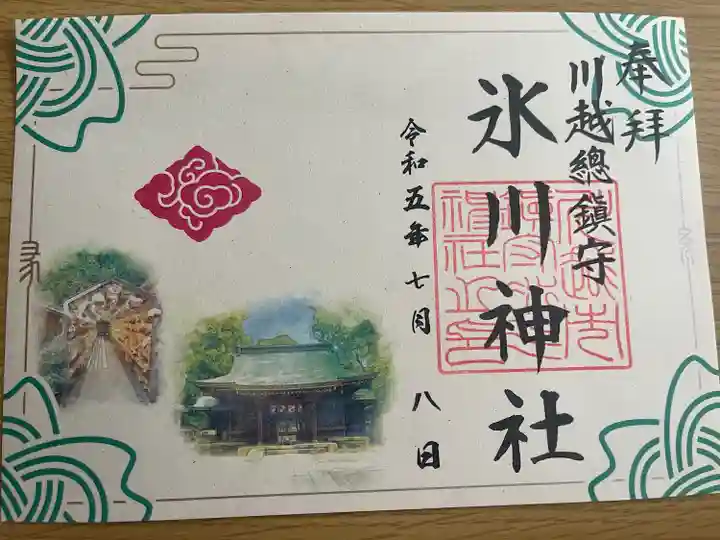 奉拝
川越總鎮守
氷川神社
令和五年七月八日